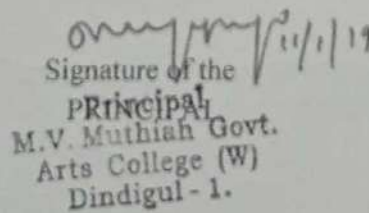 11/1/19
Signature of the
PRINCIPAL
Principal
M.V. Muthiah Govt.
Arts College (W)
Dindigul - 1.